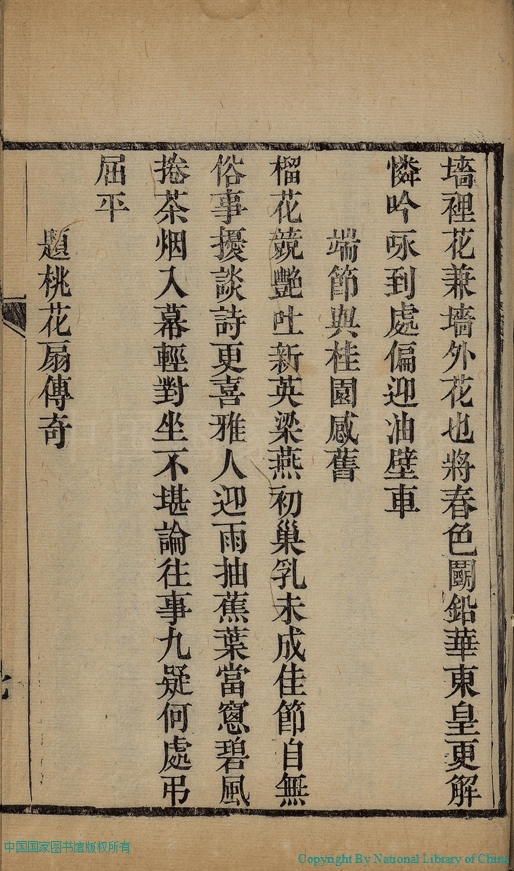 墻裡花兼墻外花也將春色鬬鉛華東皇更解
憐吟咏到處偏迎油壁車
端節與桂園感舊
榴花競艷吐新英梁燕初巢乳未成佳節自無
俗事擾談詩更喜雅人迎雨抽蕉葉當窻碧風
捲茶烟入幕輕對坐不堪論往事九疑何處弔
屈平
題桃花扇傳奇
中国国家图书馆版权所有
Copyright By National Library of China